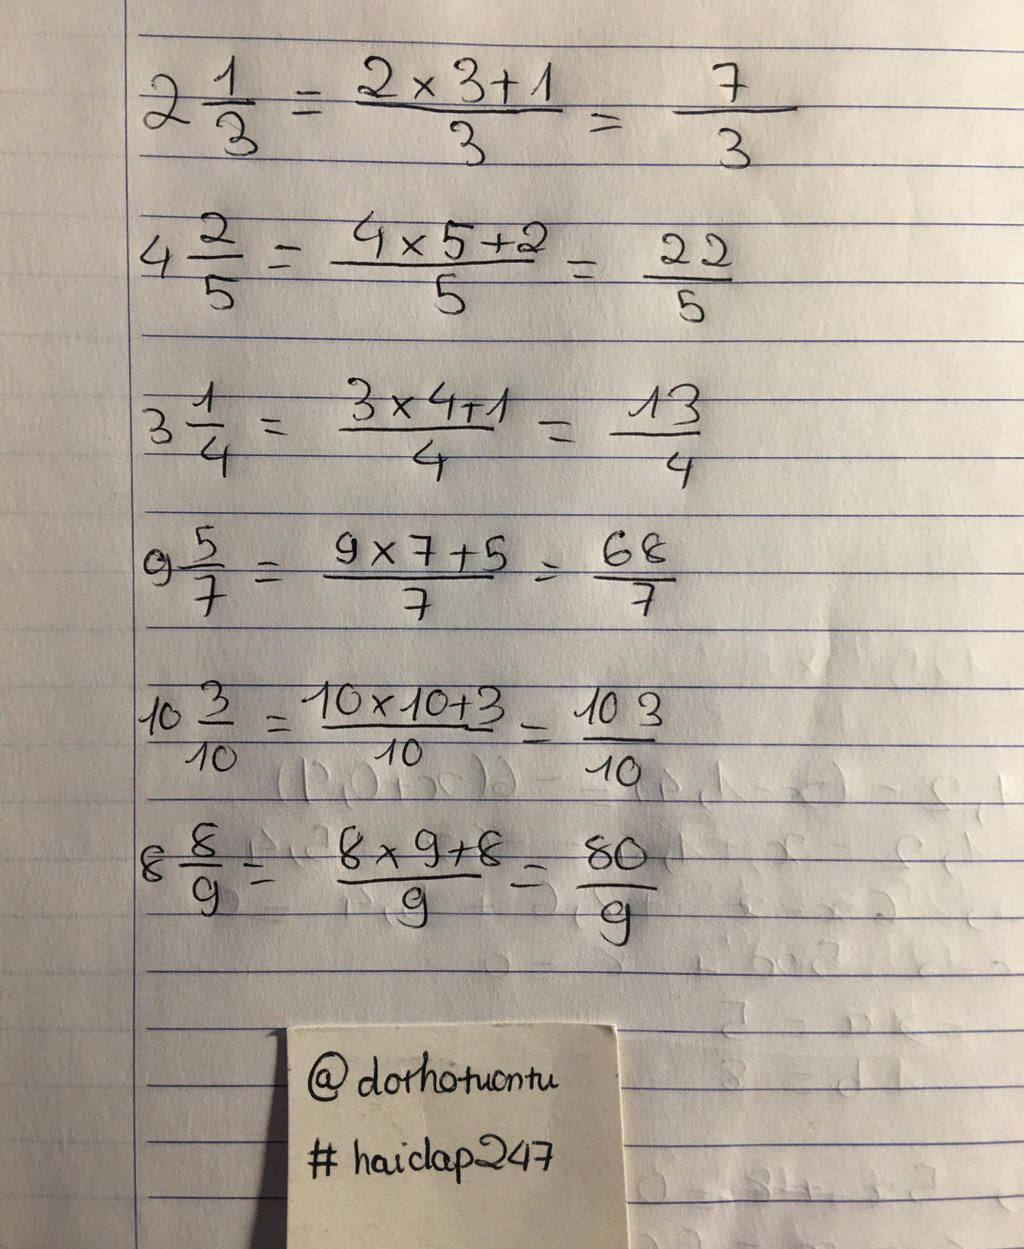 2 1/3 = 2 × 3 + 1 / 3 = 7/3
4 2/5 = 4 × 5 + 2 / 5 = 22/5
3 1/4 = 3 × 4 + 1 / 4 = 13/4
9 5/7 = 9 × 7 + 5 / 7 = 68/7
10 3/10 = 10 × 10 + 3 / 10 = 103/10
8 8/9 = 8 × 9 + 8 / 9 = 80/9
@dothotuontu
# haidap247